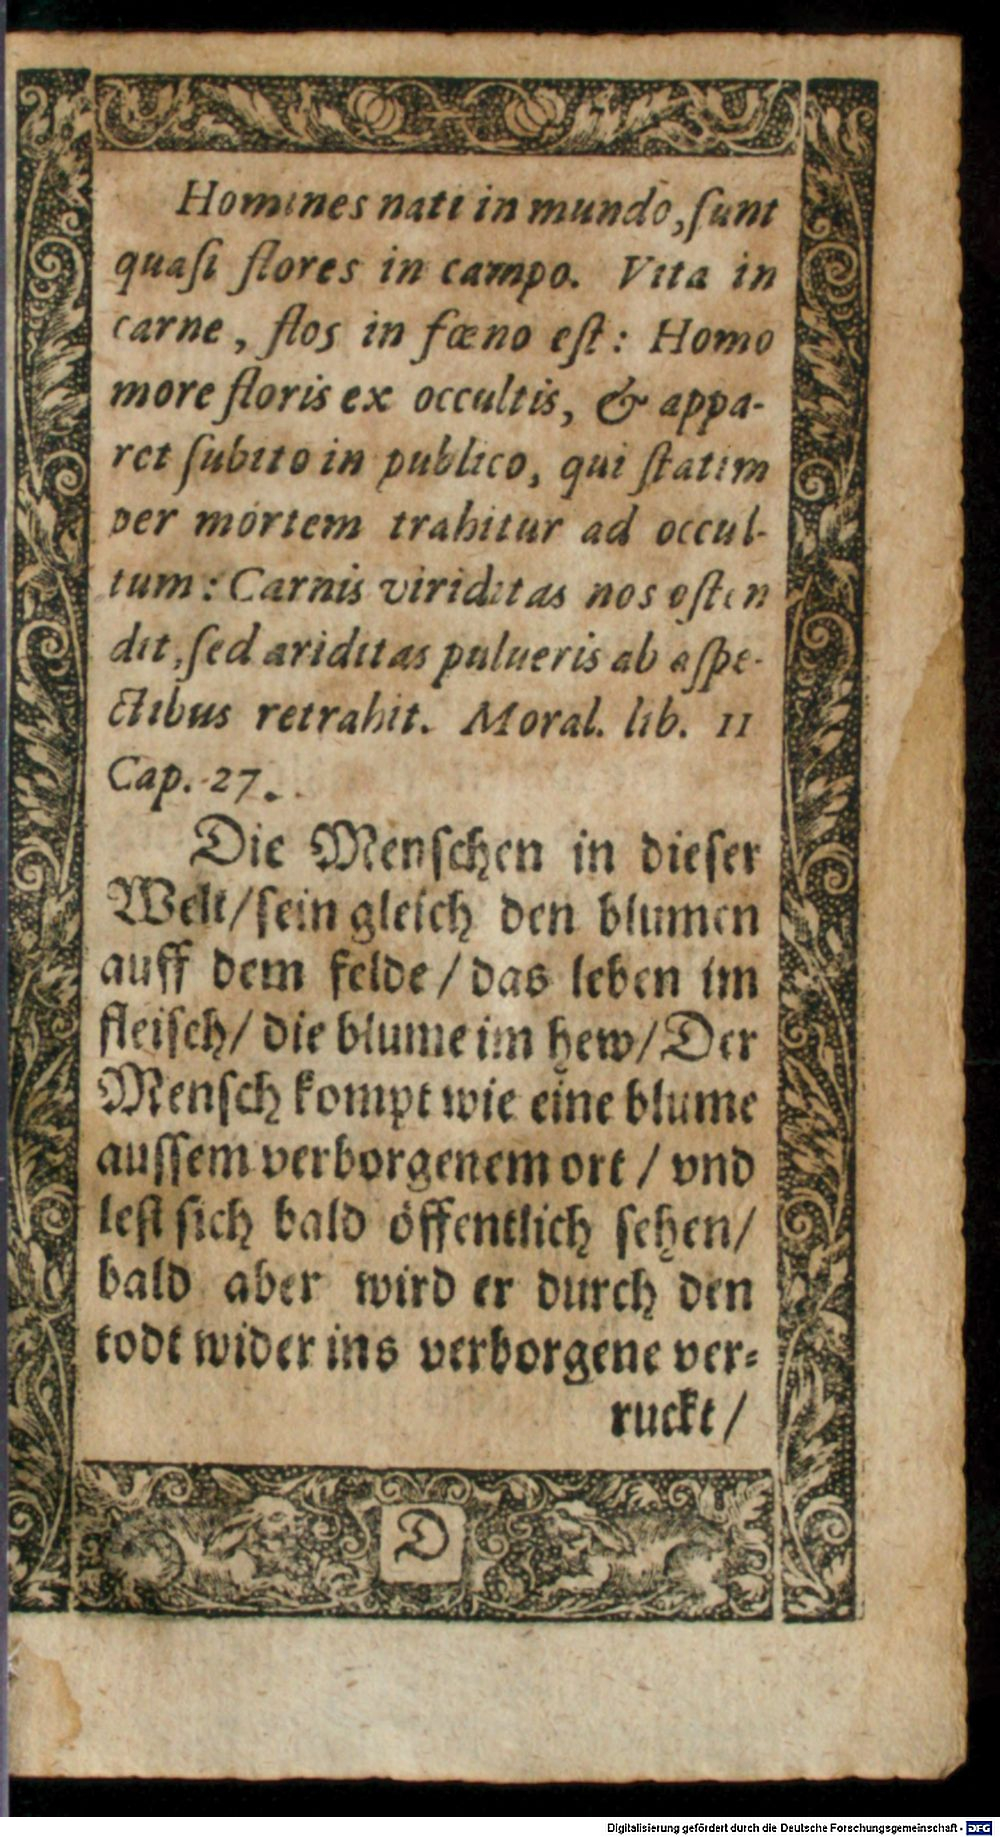 Homines nati in mundo, ſunt
quaſi flores in campo. Vita in
carne, flos in fœno eſt: Homo
more floris ex occultis, & appa-
ret ſubito in publico, qui ſtatim
per mortem trahitur ad occul-
tum: Carnis viriditas nos oſten
dit, ſed ariditas pulueris ab aſpe-
ctibus retrahit. Moral. lib. 11
Cap. 27.
Die Menſchen in dieſer
Welt/ ſein gleich den blumen
auff dem felde/ das leben im
fleiſch/ die blume im hew/ Der
Menſch kompt wie eine blume
auſſem verborgenem ort/ vnd
leſt ſich bald öffentlich ſehen/
bald aber wird er durch den
todt wider ins verborgene ver⸗
ruckt/
D
Digitalisierung gefördert durch die Deutsche Forschungsgemeinschaft - DFG